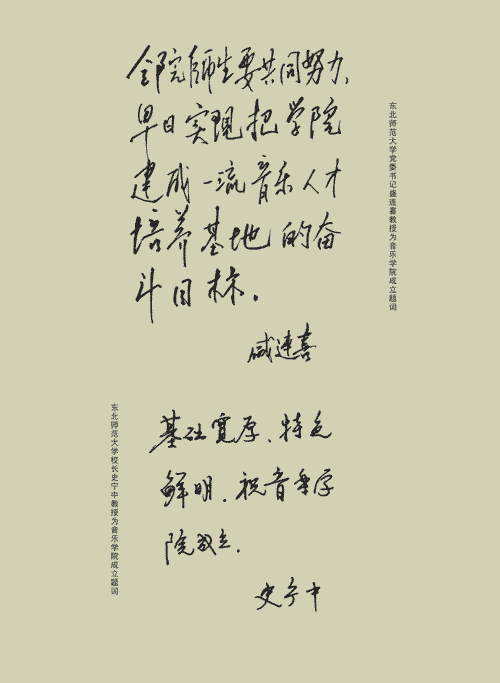 全院师生要共同努力、
早日实现把学院
建成一流音乐人才
培养基地的奋
斗目标。
盛连喜
东北师范大学党委书记盛连喜教授为音乐学院成立题词
基础宽厚、特色
鲜明。祝音乐学
院成立。
史宁中
东北师范大学校长史宁中教授为音乐学院成立题词